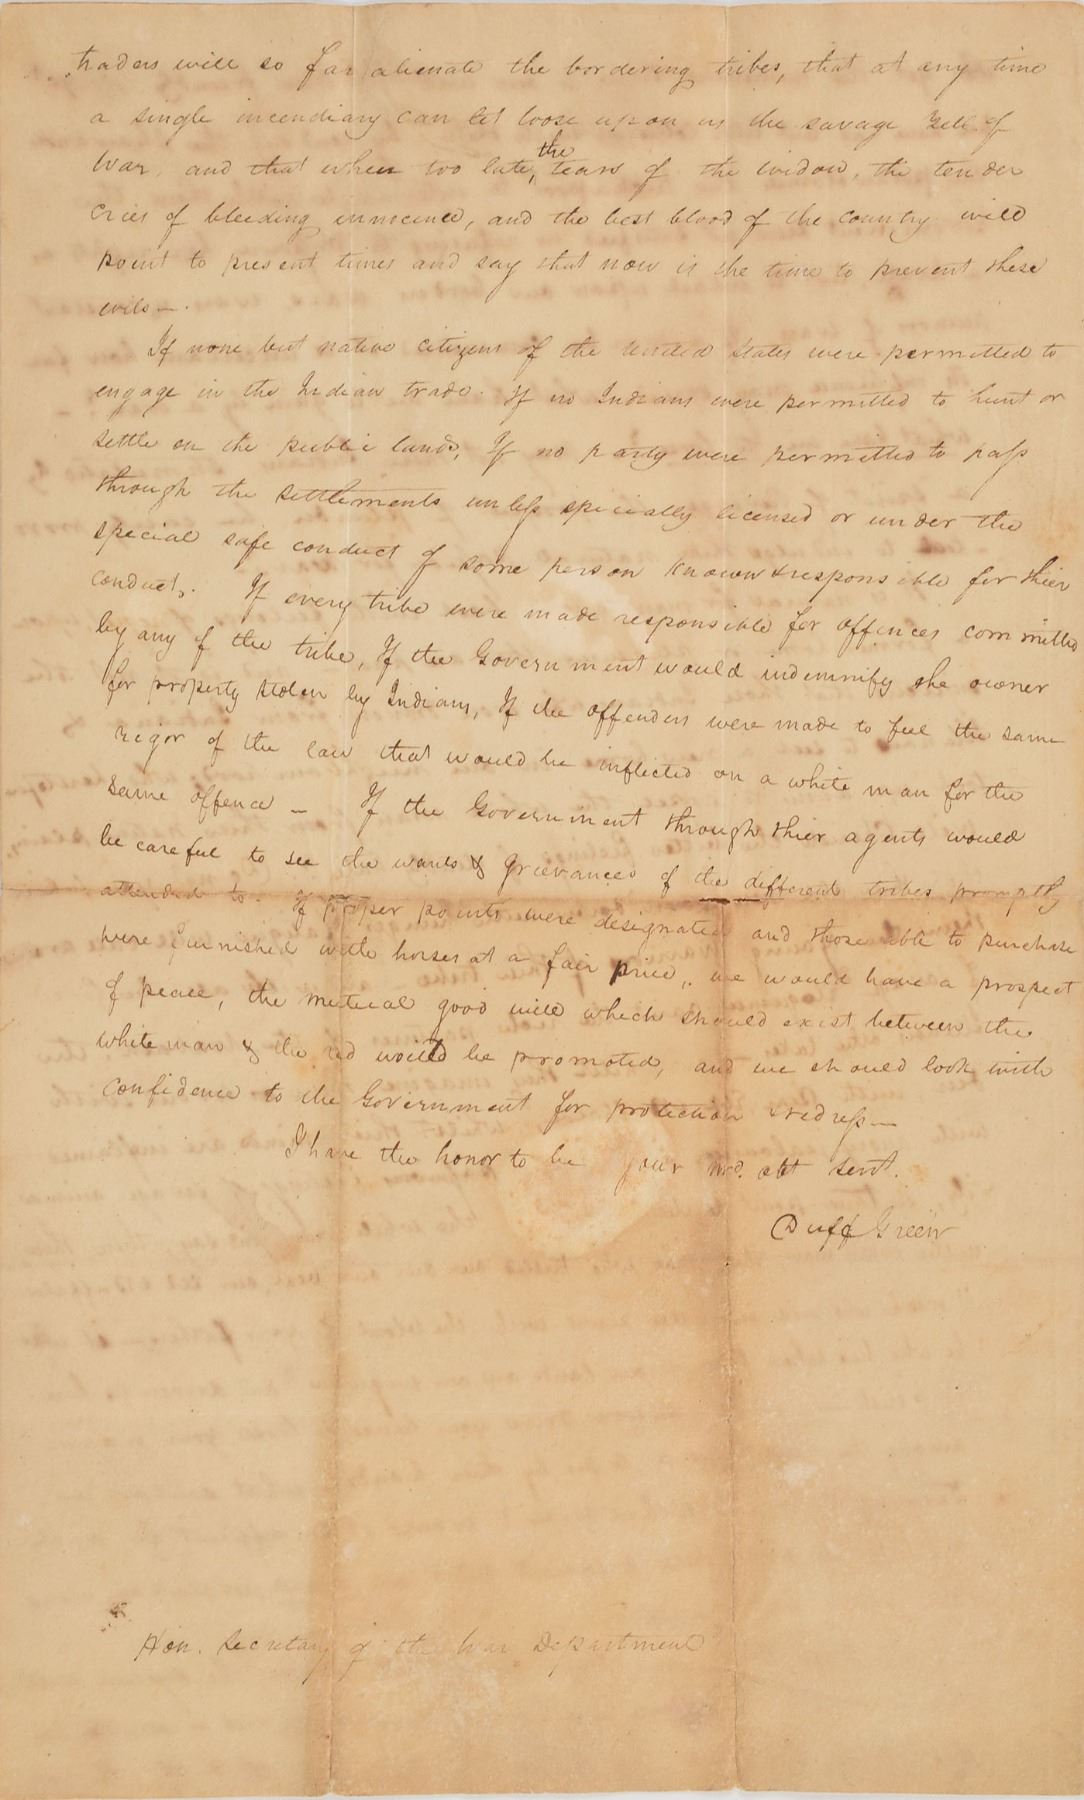 traders will so far alienate the bordering tribes, that at any time
a single incendiary can let loose upon us the savage yell of
War, and that when too late, the tears of the widow, the tender
cries of bleeding innocence, and the best blood of the country will
point to present times and say that now is the time to prevent these
evils —.
If none but native citizens of the United States were permitted to
engage in the Indian trade. If no Indians were permitted to hunt or
settle on the public lands, If no party were permitted to pass
through the settlements unless specially licensed or under the
special safe conduct of some person known & responsible for thier
conduct. If every tribe were made responsible for offences committed
by any of the tribe, If the Government would indemnify the owner
for property stolen by Indians, If the offenders were made to feel the same
rigor of the law that would be inflicted on a white man for the
same offence — If the Government through thier agents would
be careful to see the wants & grievances of the different tribes promptly
attended to. If proper points were designated and those able to purchase
were furnished with horses at a fair price, we would have a prospect
of peace, the mutual good will which should exist between the
white man & the red would be promoted, and we should look with
confidence to the Government for protection & redress —
I have the honor to be your mo. obt servt.
Duff Green
Hon. Secretary of the War Department